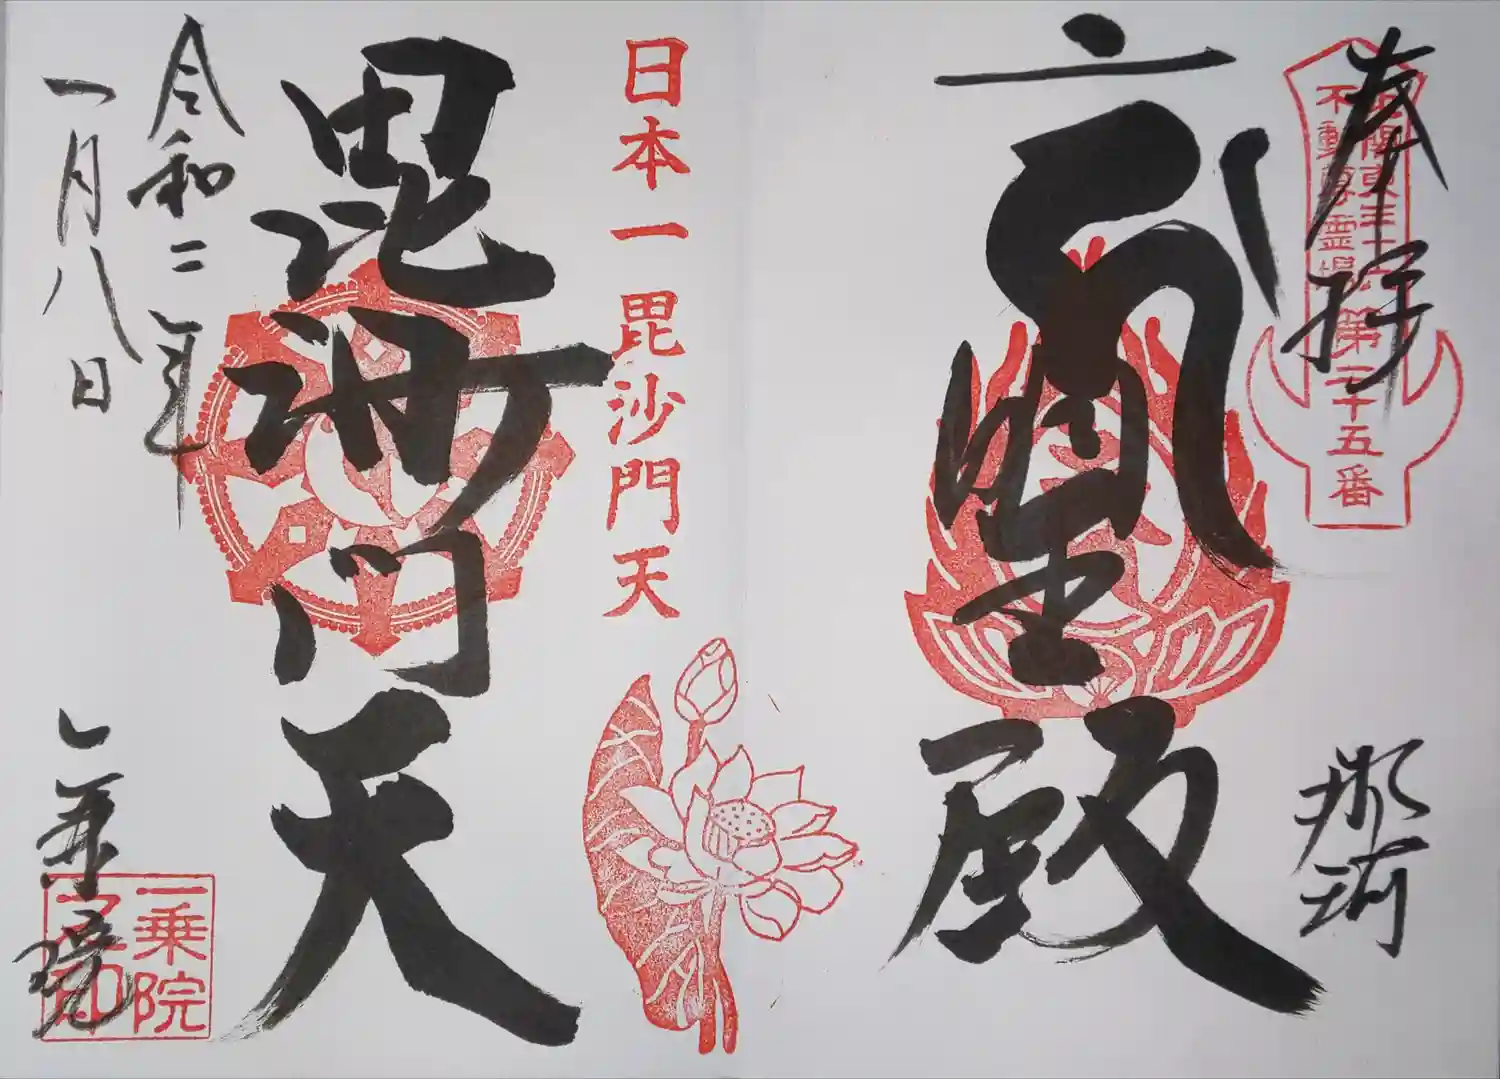 奉拝
北関東三十六
不動尊霊場
第三十五番
那珂
明王殿
日本一毘沙門天
毘沙門天
令和二年
一月八日
一乗院
一乗院